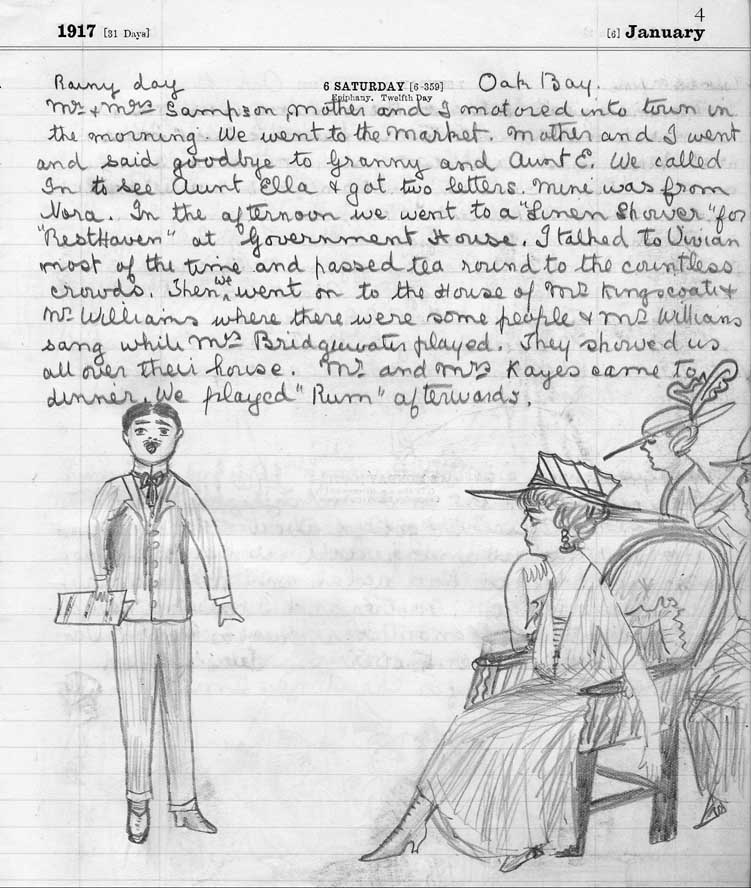 4
1917 [31 Days] [6] January
Rainy day 6 SATURDAY [6-359] Oak Bay.
Epiphany. Twelfth Day
Mr & Mrs Sampson, Mother and I motored into town in
the morning. We went to the Market. Mother and I went
and said goodbye to Granny and Aunt E. We called
In to see Aunt Ella & got two letters. Mine was from
Nora. In the afternoon we went to a "Linen Shower" for
"RestHaven" at Government House. I talked to Vivian
most of the time and passed tea round to the countless
crowds. Then we went on to the House of Mr Kingscoate &
Mr Williams where there were some people & Mr Willians
sang while Mrs Bridgewater played. They showed us
all over their house. Mr and Mrs Kayes came to
dinner. We played "Rum" afterwards.